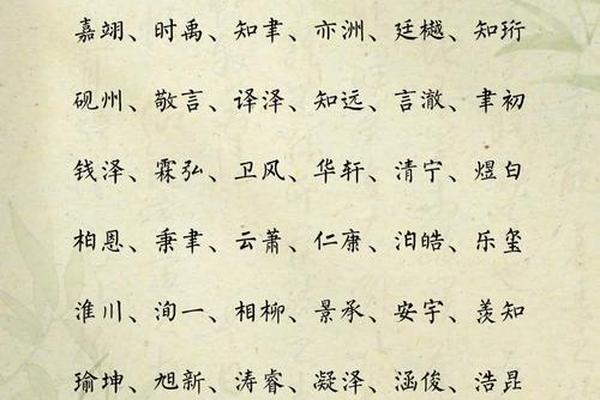 嘉翊、时禹、知聿、亦洲、廷樾、知珩
砚州、敬言、译泽、知远、言澈、聿初
钱泽、霖弘、卫风、华轩、清宁、煜白
柏恩、秉聿、云萧、仁康、泊皓、乐玺
淮川、洵一、相柳、景承、安宇、羡知
瑜坤、旭新、涛睿、凝泽、涵俊、浩昆